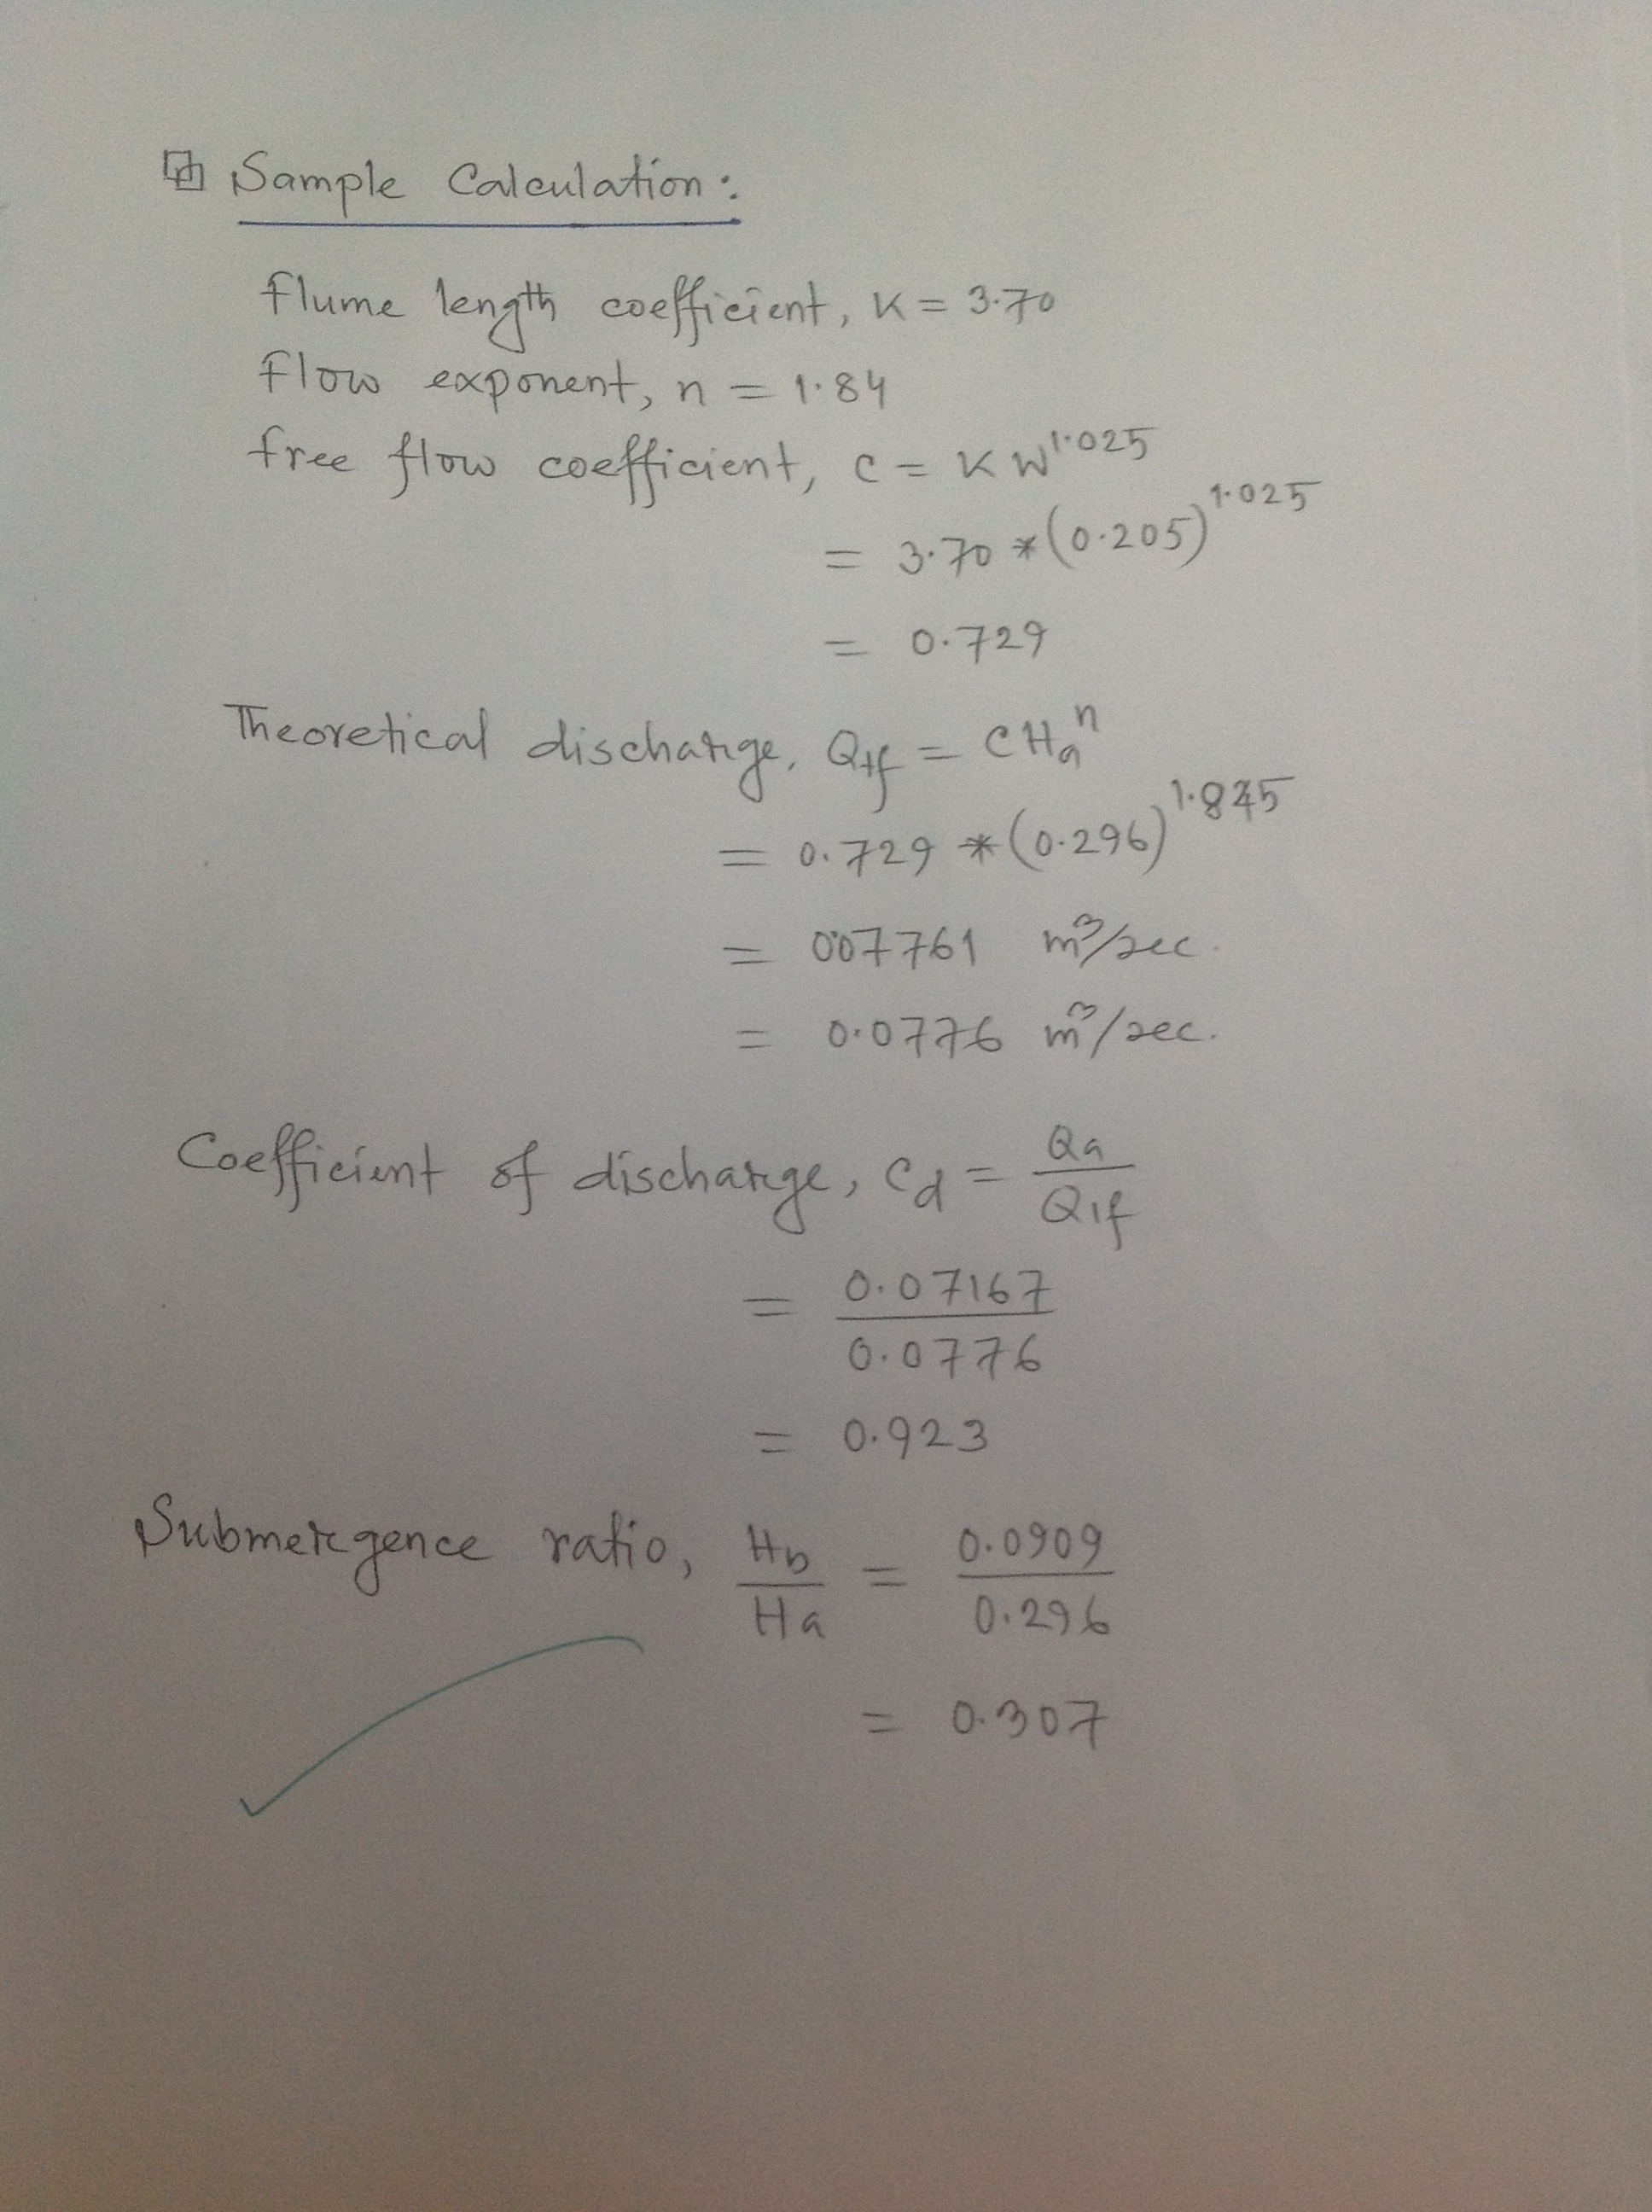 Sample Calculation:
flume length coefficient, K = 3.70
flow exponent, n = 1.84
free flow coefficient, C = KW^1.025
= 3.70 * (0.205)^1.025
= 0.729
Theoretical discharge, Qtf = CHa^n
= 0.729 * (0.296)^1.845
= 0.07761 m³/sec.
= 0.0776 m³/sec.
Coefficient of discharge, Cd = Qa/Qtf
= 0.07167/0.0776
= 0.923
Submergence ratio, Hb/Ha = 0.0909/0.296
= 0.307